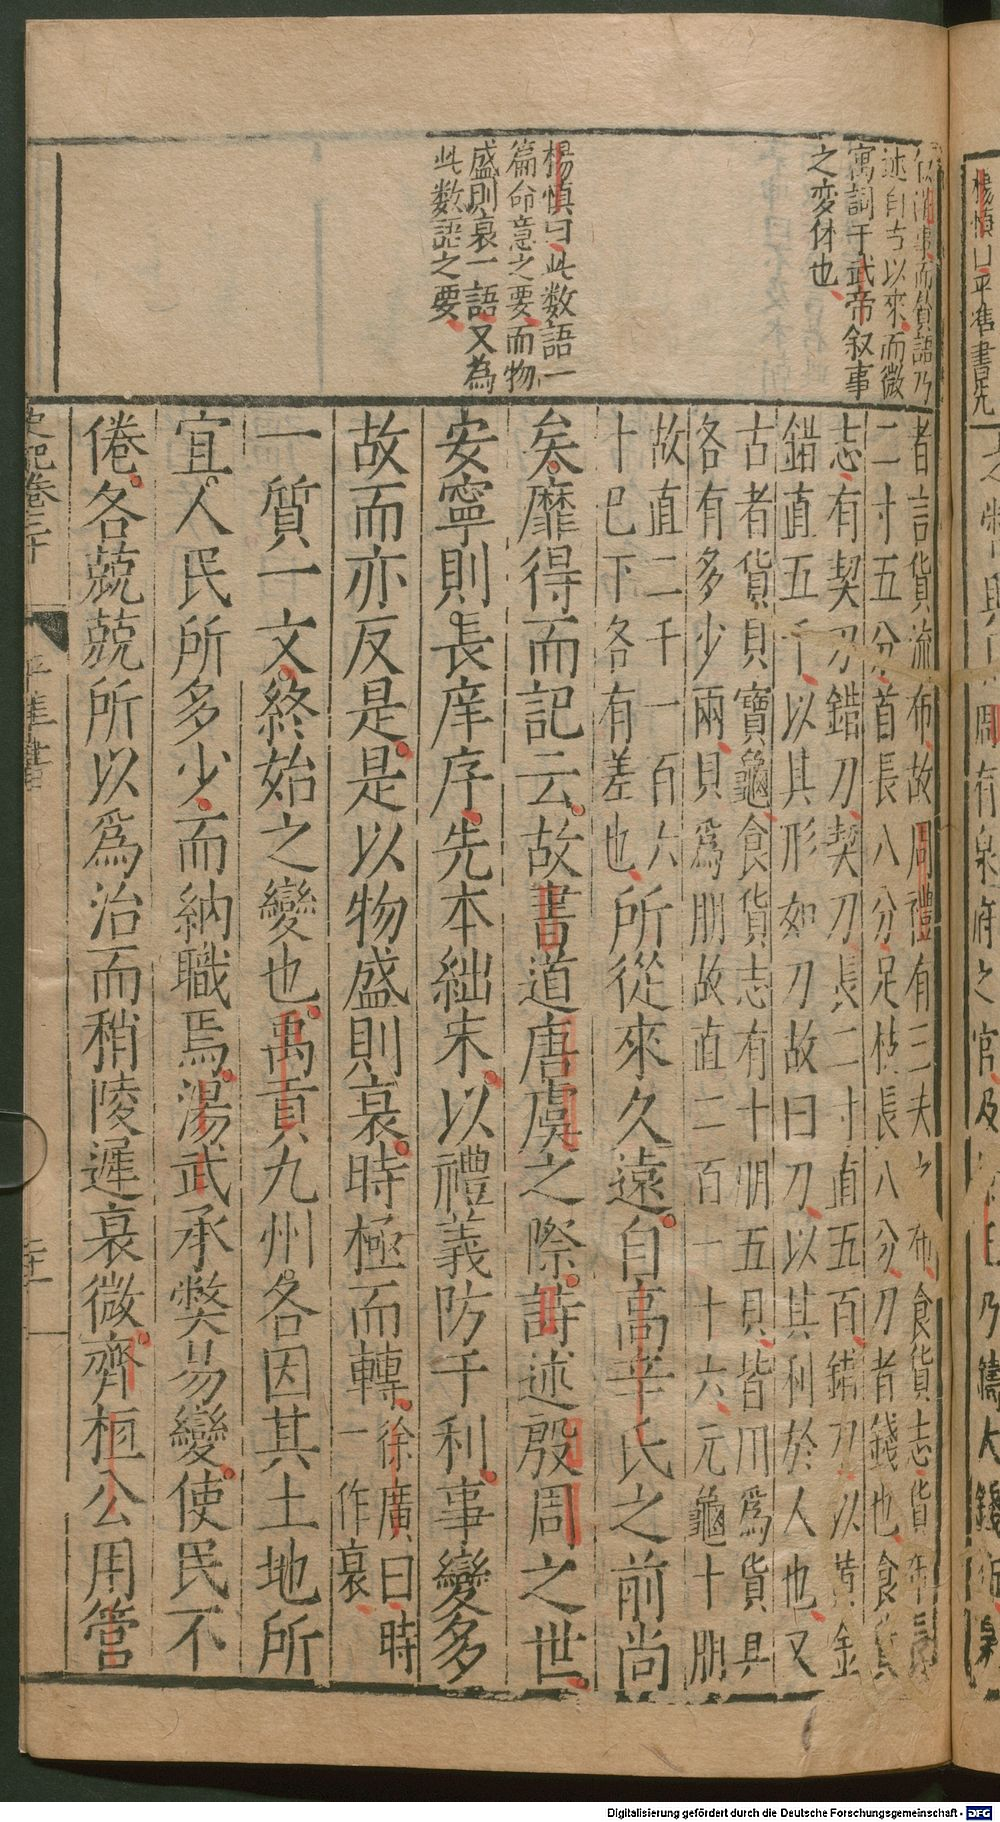 楊慎曰平準書先
之
周有泉府之官及
乃鑄大錢
而貨語乃
述自古以來而微
寓詞于武帝叙事
之変体也
楊慎曰此数語一
篇命意之要而物
盛則衰一語又為
此数語之要
者言貨流布故周禮有三夫之布食貨志貨布長
二寸五分首長八分分足枝長八分刀者錢也食貨
志有契刀錯刀契刀長二寸直五百錯刀以黃金
錯直五千以其形如刀故曰刀以其利於人也又
古者貨貝寶龜食貨志有十朋五貝皆用爲貨具
各有多少兩貝爲朋故直二百一十六元龜十朋
故直二千一百六
十巳下各有差也
所從來久遠自高辛氏之前尚
矣靡得而記云故書道唐虞之際詩述殷周之世
安寧則長庠序先本絀末以禮義防于利事變多
故而亦反是是以物盛則衰時極而轉
徐廣曰時
一作衰
一質一文終始之變也禹貢九州各因其土地所
宜人民所多少而納職焉湯武承弊易變使民不
倦各兢兢所以爲治而稍陵遲衰微齊桓公用管
史記卷三十
平準書
Digitalisierung gefördert durch die Deutsche Forschungsgemeinschaft - DFG